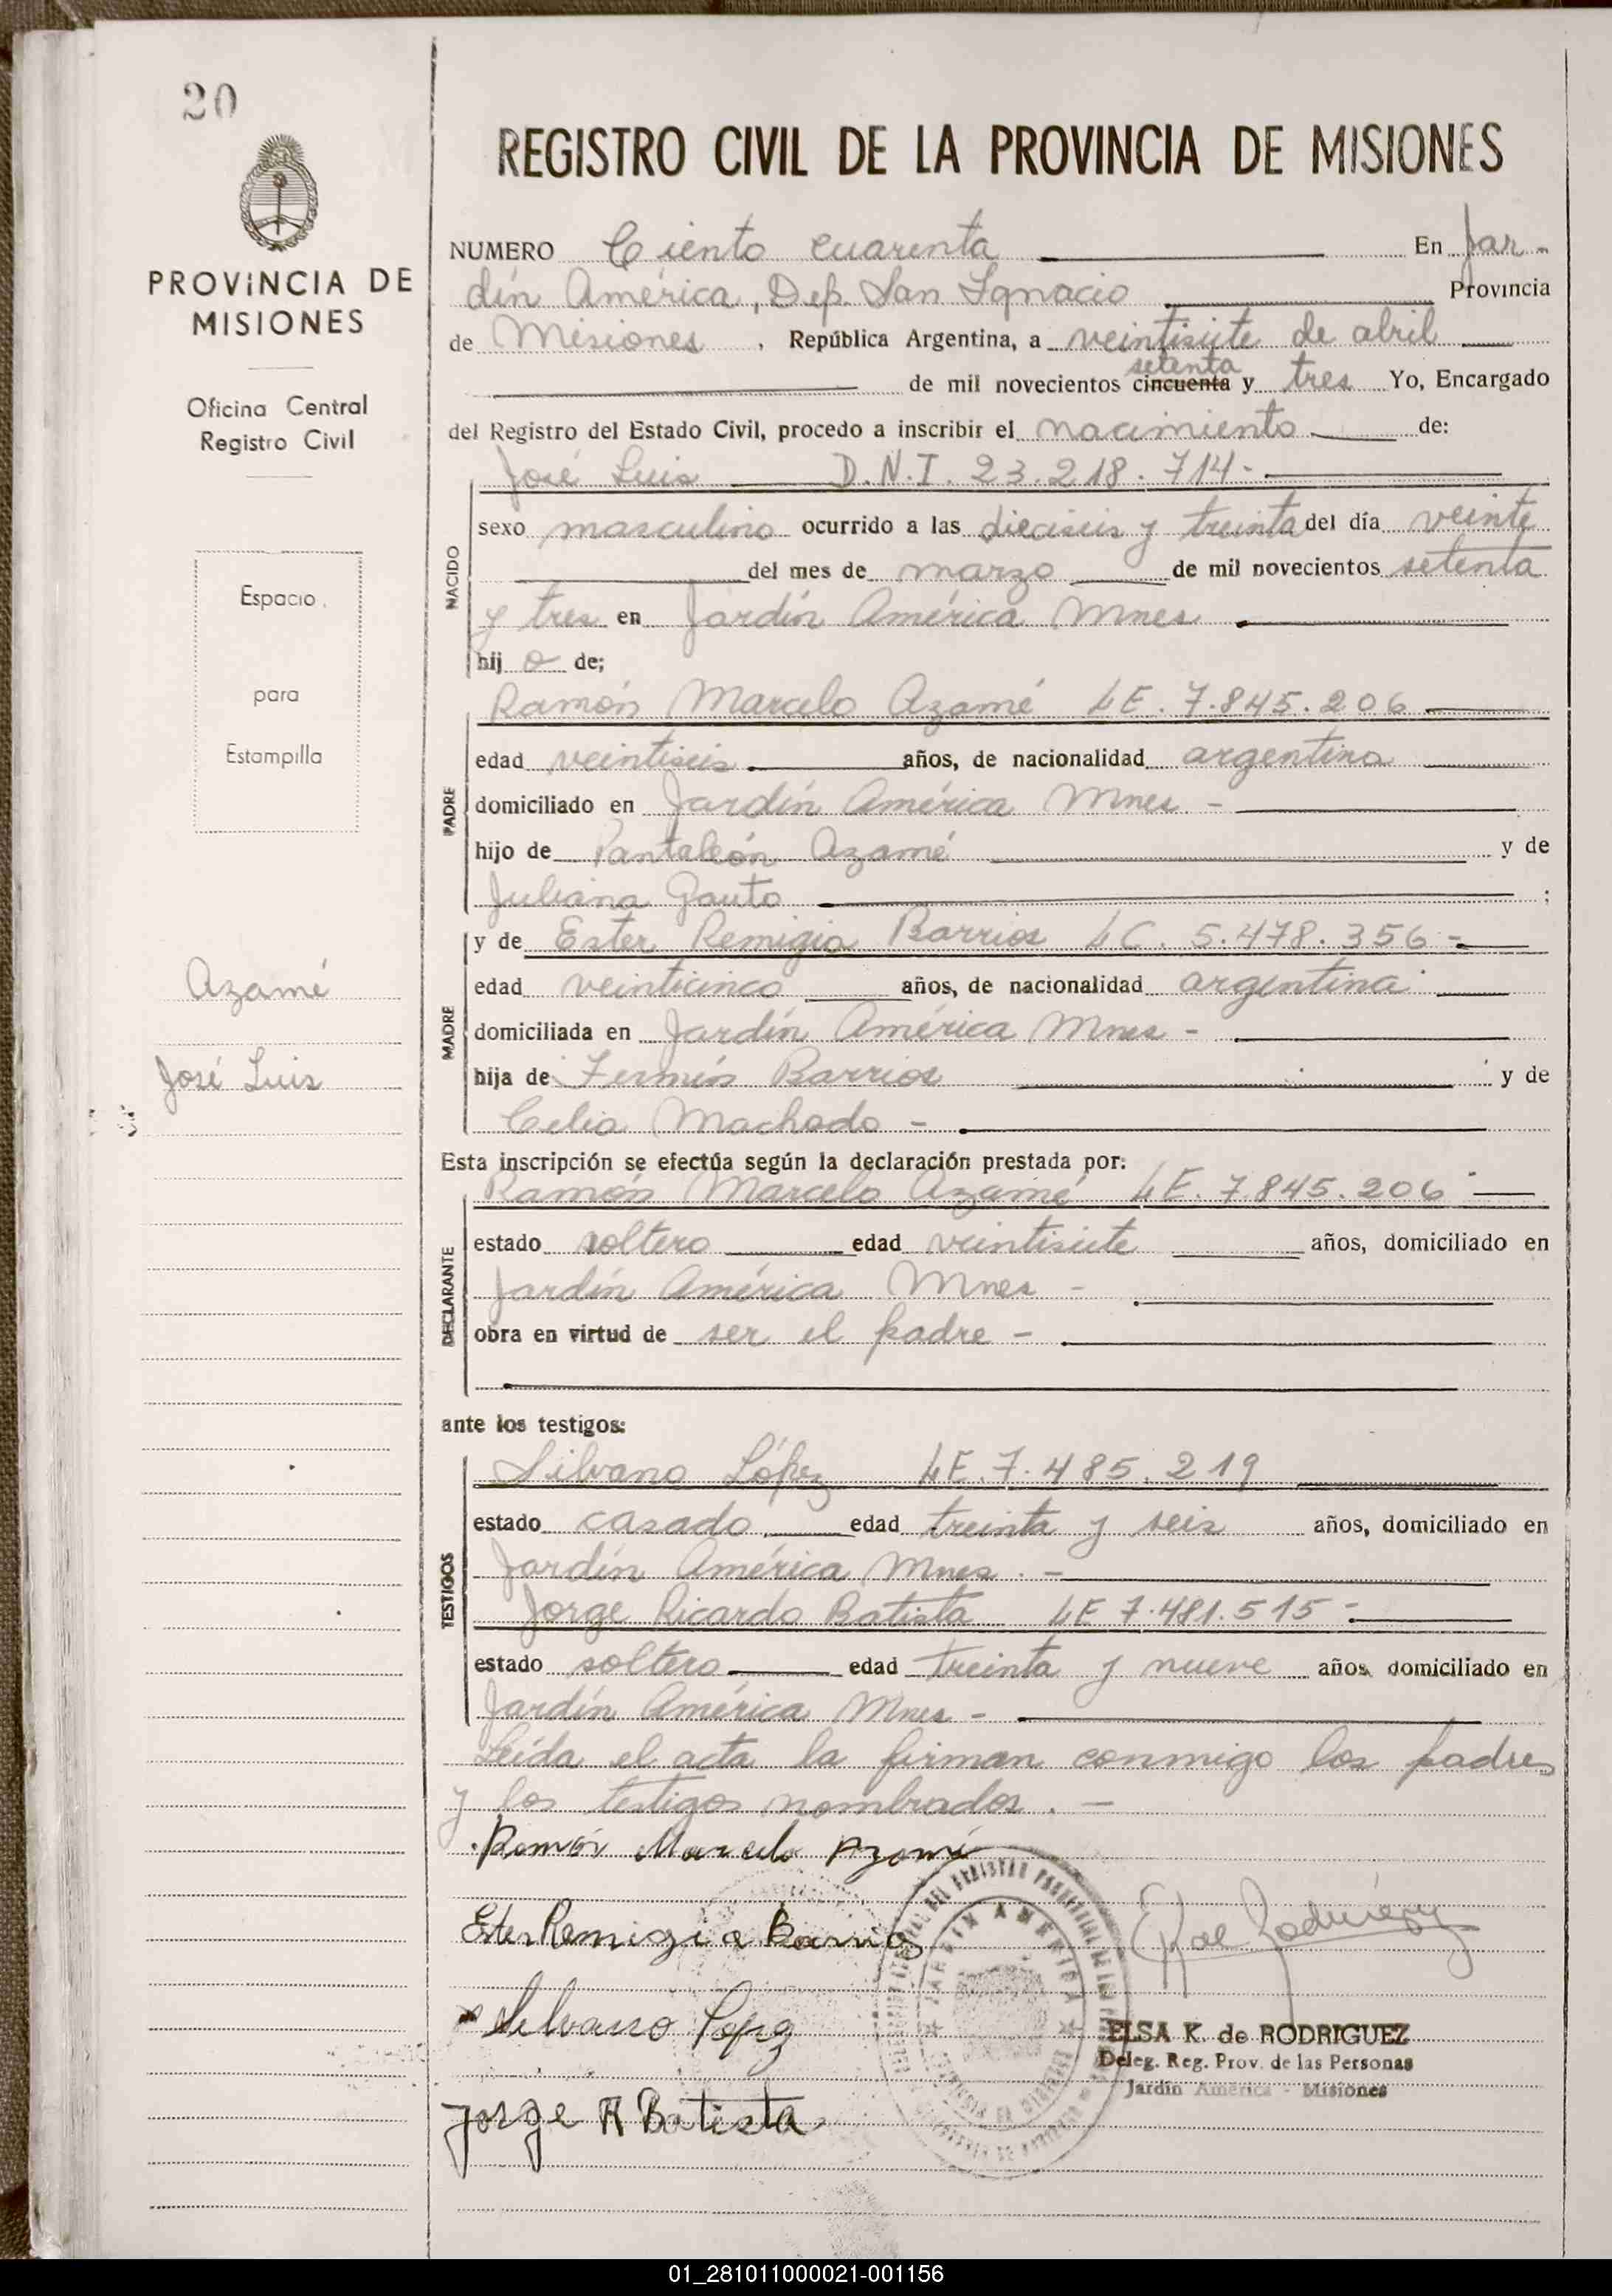 20
PROVINCIA DE
MISIONES
Oficina Central
Registro Civil
Espacio
para
Estampilla
Azamé
José Luis
REGISTRO CIVIL DE LA PROVINCIA DE MISIONES
NUMERO Ciento cuarenta En Jar-
dín América, Dep. San Ignacio Provincia
de Misiones, República Argentina, a veintisiete de abril
setenta
de mil novecientos cincuenta y tres Yo, Encargado
del Registro del Estado Civil, procedo a inscribir el nacimiento de:
José Luis D.N.I. 23.218.714-
NACIDO
sexo masculino ocurrido a las dieciseis y treinta del día veinte
del mes de marzo de mil novecientos setenta
y tres en Jardín América Mnes
hij o de;
Ramón Marcelo Azamé LE. 7.845.206
PADRE
edad veintiseis años, de nacionalidad argentina
domiciliado en Jardín América Mnes -
hijo de Pantaleón Azamé y de
Juliana Gauto ;
MADRE
y de Ester Remigia Barrios LC. 5.478.356 -
edad veinticinco años, de nacionalidad argentina
domiciliada en Jardín América Mnes -
hija de Fermín Barrios y de
Celia Machado -
Esta inscripción se efectúa según la declaración prestada por:
DECLARANTE
Ramón Marcelo Azamé LE. 7.845.206
estado soltero edad veintisiete años, domiciliado en
Jardín América Mnes -
obra en virtud de ser el padre -
ante los testigos:
TESTIGOS
Silvano López LE. 7.485.219
estado casado edad treinta y seis años, domiciliado en
Jardín América Mnes. -
Jorge Ricardo Batista LE 7.481.515 -
estado soltero edad treinta y nueve años, domiciliado en
Jardín América Mnes -
Leída el acta la firman conmigo los padres
y los testigos nombrados. -
Ramón Marcelo Azamé
Ester Remigia Barrios
Silvano López
Jorge R Batista
JARDIN AMERICA
ELSA K. de RODRIGUEZ
Deleg. Reg. Prov. de las Personas
Jardín América - Misiones
01_281011000021-001156